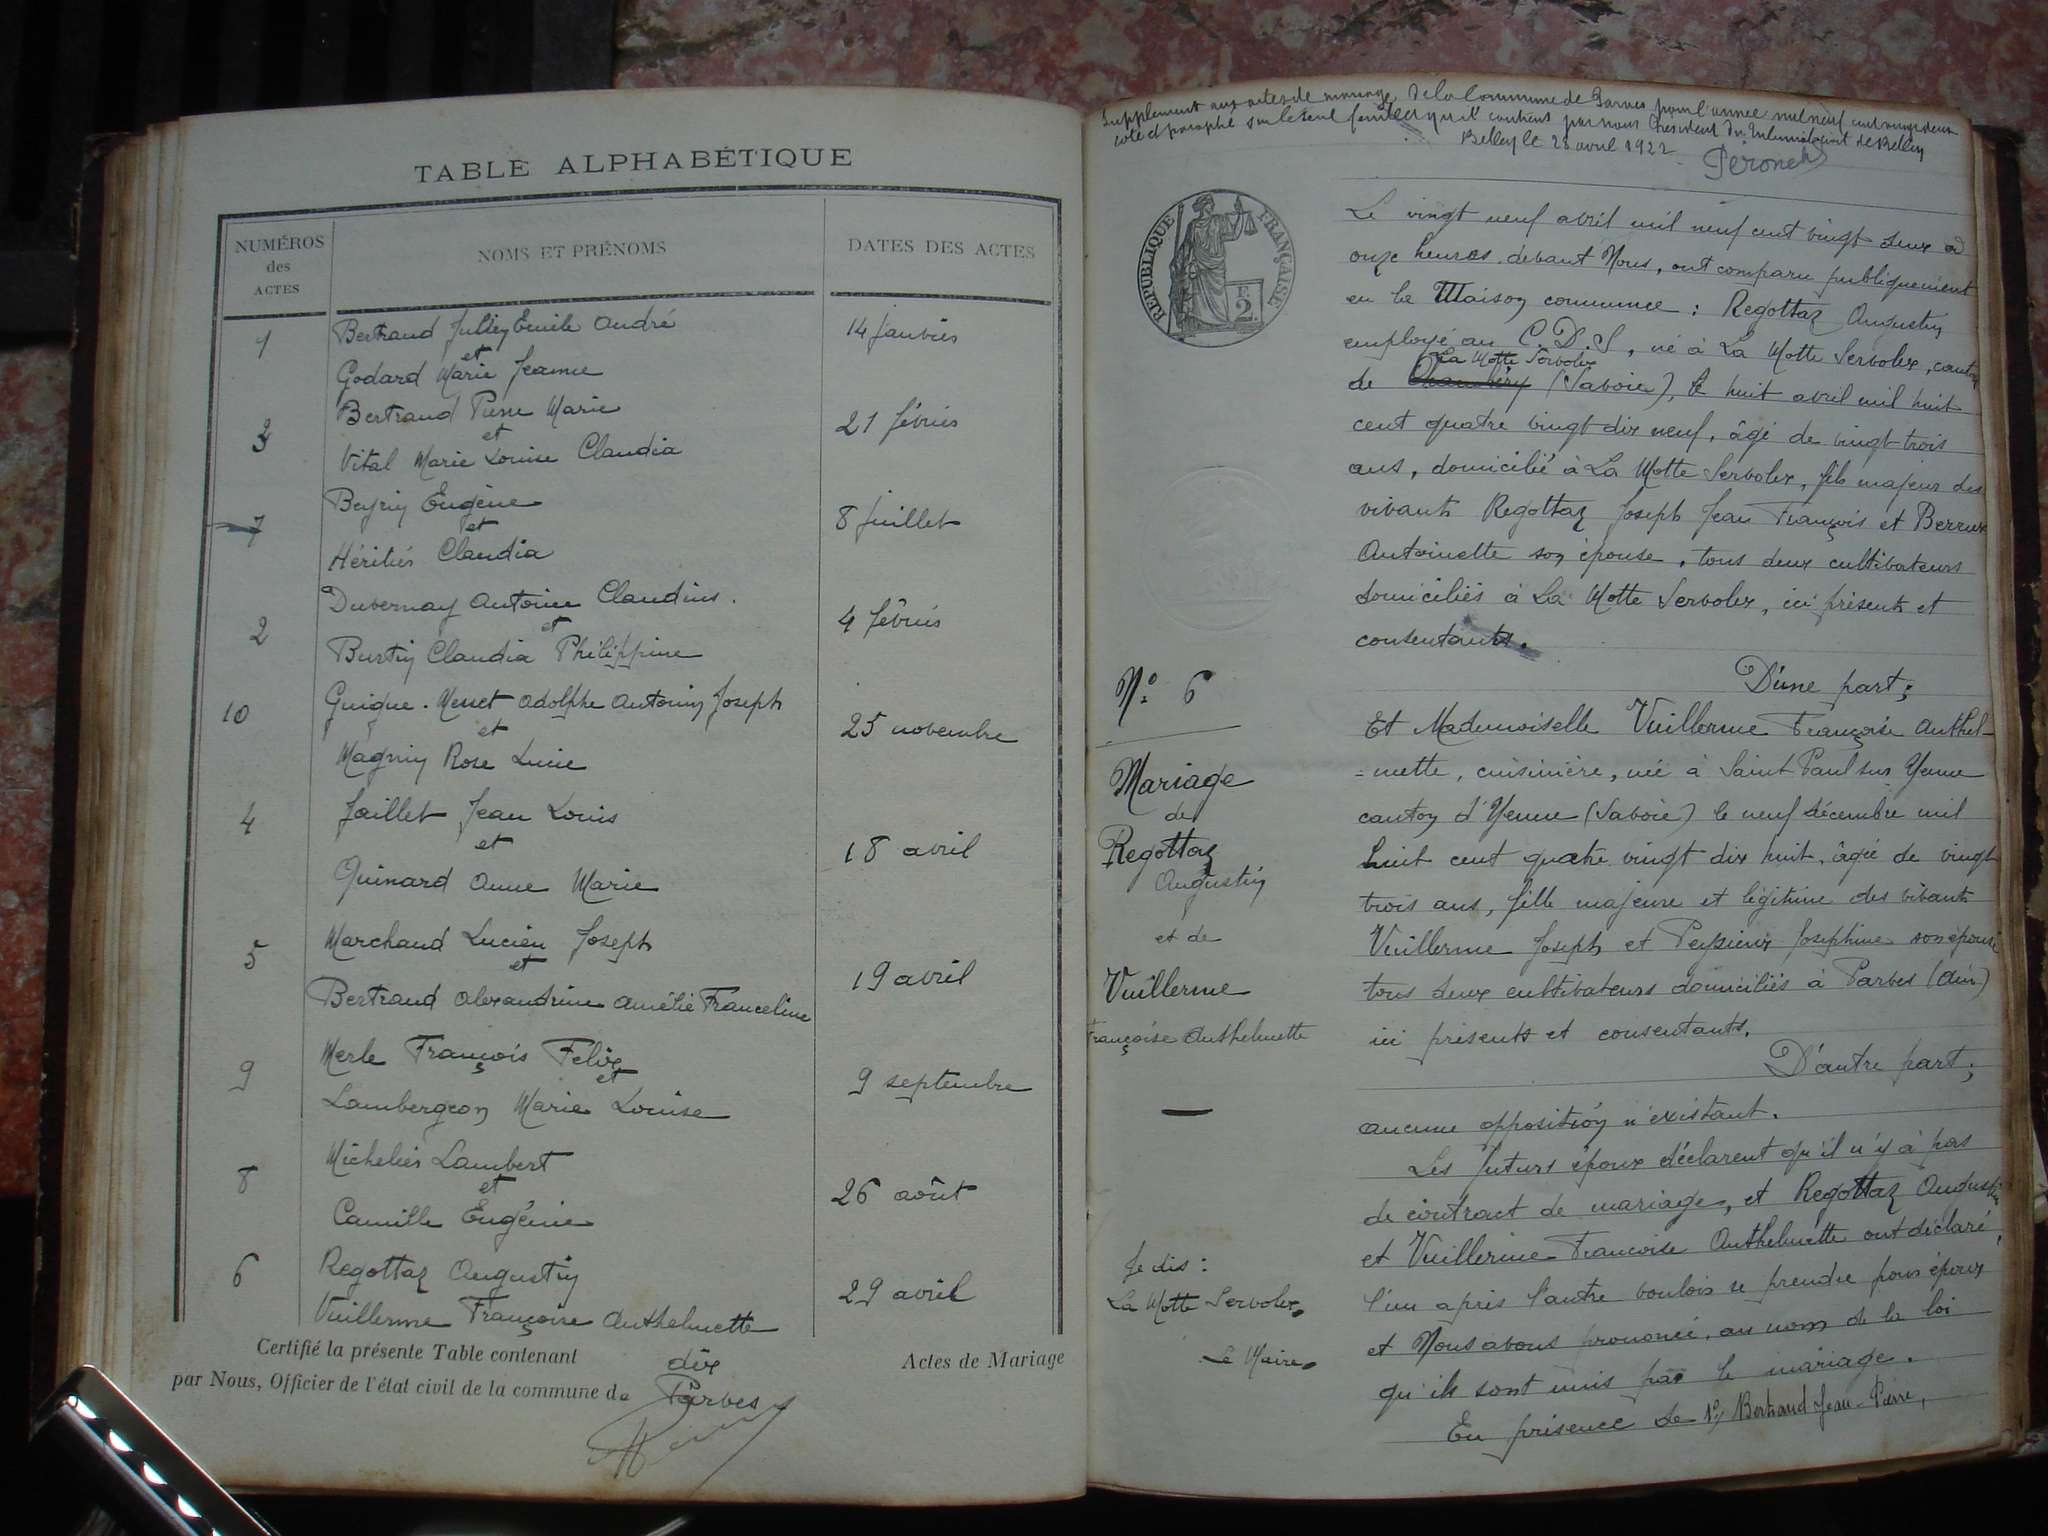 TABLE ALPHABÉTIQUE
NUMÉROS des ACTES
NOMS ET PRÉNOMS
DATES DES ACTES
1 Bertrand Julien Emile André 14 Janvier
et
Godard Marie Jeanne
3 Bertrand Pierre Marie 21 février
et
Vital Marie Louise Claudia
7 Beyrin Eugène 8 Juillet
et
Héritier Claudia
2 Duvernay Antoine Claudius. 4 février
et
Burtin Claudia Philippine
10 Guigue-Messet Adolphe Antonin Joseph 25 novembre
et
Magnin Rose Lucie
4 Jaillet Jean Louis 18 avril
et
Guinard Anne Marie
5 Marchaud Lucien Joseph 19 avril
et
Bertrand Alexandrine Amélie Franceline
9 Merle François Felix 9 septembre
et
Lambergeon Marie Louise
8 Michelier Lambert 26 août
et
Camille Eugénie
6 Regottaz Augustin 29 avril
Vuillerme Françoise Anthelmette
Certifié la présente Table contenant dix Actes de Mariage
par Nous, Officier de l'état civil de la commune de Parves
Supplement aux actes de mariage de la Commune de Parves pour l'année mil neuf cent vingt deux
coté et paraphé sur le seul feuillet qu'il contient par nous President du Tribunal civil de Belley
Belley le 28 avril 1922
Péronet
REPUBLIQUE FRANÇAISE
F. 2.
Le vingt neuf avril mil neuf cent vingt deux à
onze heures devant Nous, ont comparu publiquement
en la Maison commune : Regottaz Augustin
employé au C.D.S, né à La Motte Servolex, canton
La Motte Servolex
de Chambéry (Savoie), le huit avril mil huit
cent quatre vingt dix neuf, âgé de vingt trois
ans, domicilié à La Motte Servolex, fils majeur des
vivants Regottaz Joseph Jean François et Berrux
Antoinette son épouse, tous deux cultivateurs
domiciliés à La Motte Servolex, ici présents et
consentants.
D'une part ;
Et Mademoiselle Vuillerme Françoise Anthel-
=mette, cuisinière, née à Saint Paul sur Yenne
canton d'Yenne (Savoie) le neuf décembre mil
huit cent quatre vingt dix huit, âgée de vingt
trois ans, fille majeure et légitime des vivants
Vuillerme Joseph et Peysieux Josephine son épouse
tous deux cultivateurs domiciliés à Parves (Ain)
ici présents et consentants.
D'autre part ;
aucune opposition n'existant.
Les futurs époux déclarent qu'il n'y à pas
de contract de mariage, et Regottaz Augustin
et Vuillerme Françoise Anthelmette ont déclaré,
l'un après l'autre vouloir se prendre pour époux
et Nous avons prononcé, au nom de la loi
qu'ils sont unis par le mariage.
En présence de 1º/ Bertrand Jean-Pierre,
Nº 6
Mariage
de
Regottaz
Augustin
et de
Vuillerme
Françoise Anthelmette
Je dis :
La Motte Servolex.
Le Maire.